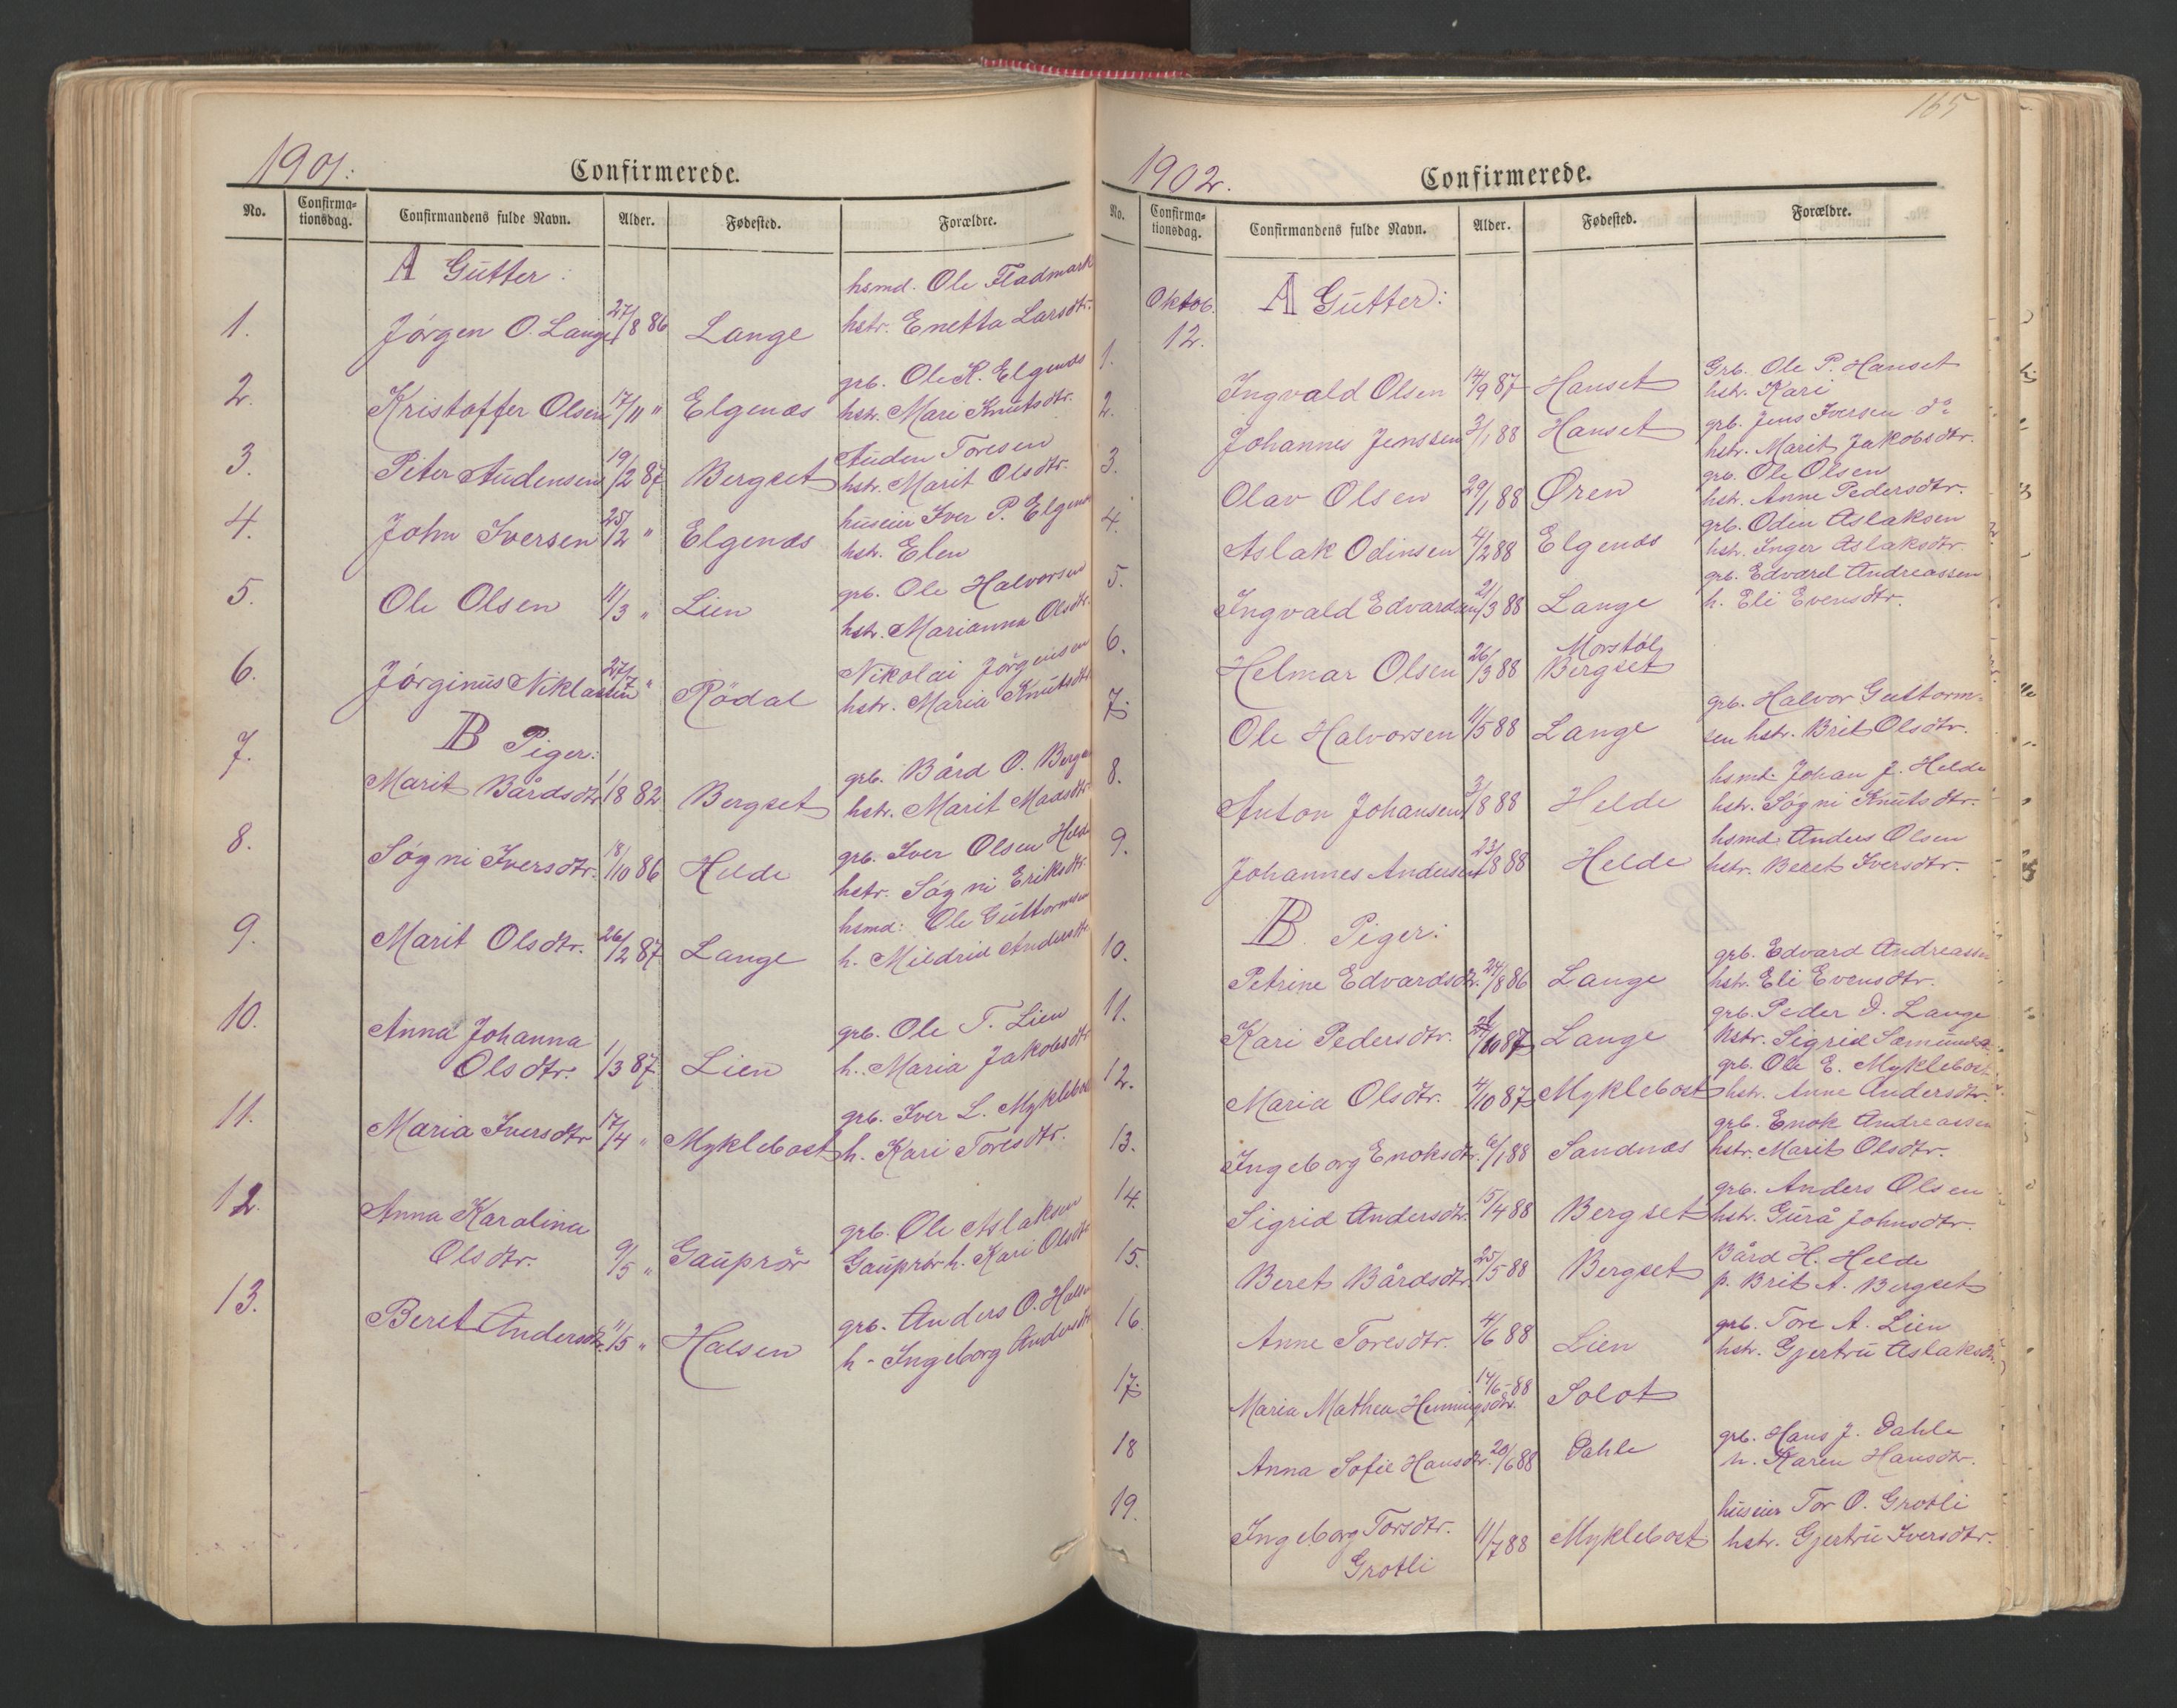 1901.
Confirmerede.
No. Confirma-tionsdag. Confirmandens fulde Navn. Alder. Fødested. Forældre.
A Gutter:
hsmd. Ole Fladmark
1. Jörgen O. Lange 27/8 86 Lange hstr. Enetta Larsdtr.
grb. Ole K. Elgenæs
2. Kristoffer Olsen 17/11 " Elgenæs hstr. Mari Knutsdtr.
Auden Toresen
3. Peter Audensen 19/2 87 Bergset hstr. Marit Olsdtr.
huseier Iver P. Elgenæs
4. John Iversen 25/2 " Elgenæs hstr. Elen
grb. Ole Halvorsen
5. Ole Olsen 11/3 " Lien hstr. Marianna Olsdtr.
Nikolai Jörgensen
6. Jörginus Niklassen 27/7 " Rödal hstr. Maria Knutsdtr
B Piger:
grb. Bård O. Bergset
7. Marit Bårdsdtr 1/8 82 Bergset hstr. Marit Madsdtr.
grb. Iver Olsen Helde
8. Sögni Iversdtr. 18/10 86 Helde hstr. Sögni Eriksdtr.
hsmd: Ole Guttormsen
9. Marit Olsdtr. 26/2 87 Lange h. Mildrid Andersdtr.
10. Anna Johanna grb. Ole T. Lien
Olsdtr. 1/3 87 Lien h. Maria Jakobsdtr
grb. Iver L. Myklebost
11. Maria Iversdtr 17/4 " Myklebost h. Kari Toresdtr.
12. Anna Karolina grb. Ole Aslaksen
Olsdtr. 9/5 " Gauprör Gauprör h. Kari Olsdtr
grb. Anders O. Halsen
13. Beret Andersdtr. 11/5 " Halsen h. Ingeborg Andersdtr
165
1902.
Confirmerede.
No. Confirma-tionsdag. Confirmandens fulde Navn. Alder. Fødested. Forældre.
Oktob. A Gutter:
12.
Grb. Ole P. Hanset
1. Ingvald Olsen 14/9 87 Hanset hstr. Kari
grb. Jens Iversen do
2. Johannes Jenssen 3/1 88 Hanset hstr. Marit Jakobsdtr.
grb. Ole Olsen
3. Olav Olsen 29/1 88 Øren hstr. Anne Pedersdtr.
grb. Odin Aslaksen
4. Aslak Odinsen 4/2 88 Elgenæs hstr. Inger Aslaksdtr.
grb. Edvard Andreassen
5. Ingvald Edvardsen 21/3 88 Lange h. Eli Evensdtr.
Morstöl
6. Helmar Olsen 26/3 88 Bergset
grb. Halvor Guttorm-
7. Ole Halvorsen 11/5 88 Lange sen hstr. Brit Olsdtr.
hsmd. Johan J. Helde
8. Anton Johansen 3/8 88 Helde hstr. Sögni Knutsdtr.
hsmd. Anders Olsen
9. Johannes Andersen 23/8 88 Helde hstr. Beret Iversdtr.
B. Piger:
grb. Edvard Andreassen
10. Petrine Edvardsdtr. 24/8 86 Lange hstr. Eli Evensdtr.
grb. Peder D. Lange
11. Kari Pedersdtr. /10 87 Lange hstr. Sigrid Sæmundsd.
grb. Ole E. Myklebost
12. Maria Olsdtr. 4/10 87 Myklebost hstr. Anne Andersdtr.
grb. Enok Andreassen
13. Ingeborg Enoksdtr. 6/1 88 Sandnæs hstr. Marit Olsdtr.
grb. Anders Olsen
14. Sigrid Andersdtr. 15/4 88 Bergset hstr. Gurå Johnsdtr.
Bård H. Helde
15. Beret Bårdsdtr. 25/5 88 Bergset p. Brit A. Bergset
grb. Tore A. Lien
16. Anne Toresdtr. 4/6 88 Lien hstr. Gjertru Aslaksdtr.
17. Maria Mathea Henningsdtr. 14/6-88 Solot
grb. Hans J. Dahle
18 Anna Sofie Hansdtr. 20/6 88 Dahle h. Karen Hansdtr.
huseier Tor O. Grotli
19. Ingeborg Torsdtr. 11/7 88 Myklebost hstr. Gjertru Iversdtr.
Grotli